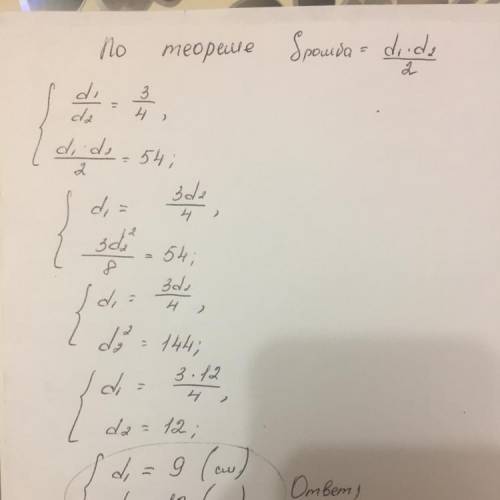 По теореме Sромба = d₁·d₂/2
{ d₁/d₂ = 3/4,
d₁·d₂/2 = 54;
{ d₁ = 3d₂/4,
3d₂²/8 = 54;
{ d₁ = 3d₂/4,
d₂² = 144;
{ d₁ = 3·12/4,
d₂ = 12;
{ d₁ = 9 (см)
Ответ,